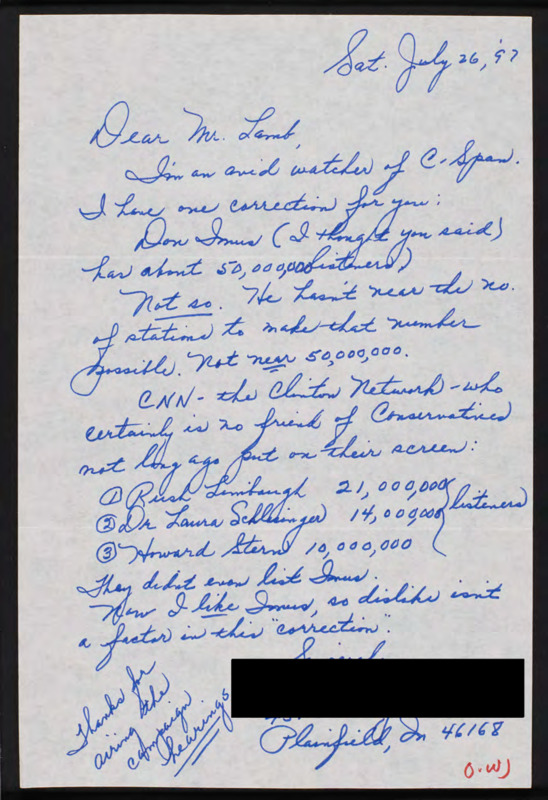 Sat. July 26, '97
Dear Mr. Lamb,
I'm an avid watcher of C-Span.
I have one correction for you:
Don Imus (I thought you said)
has about 50,000,000 listeners)
Not so. He hasn't near the no.
of stations to make that number
possible. Not near 50,000,000.
CNN - the Clinton Network - who
certainly is no friend of Conservatives
not long ago put on their screen:
① Rush Limbaugh 21,000,000
② Dr Laura Schlesinger 14,000,000 } listeners
③ Howard Stern 10,000,000
They didnt even list Imus.
Now I like Imus, so dislike isn't
a factor in this "correction".
Thanks for
airing the
campaign
hearings
Plainfield, In 46168